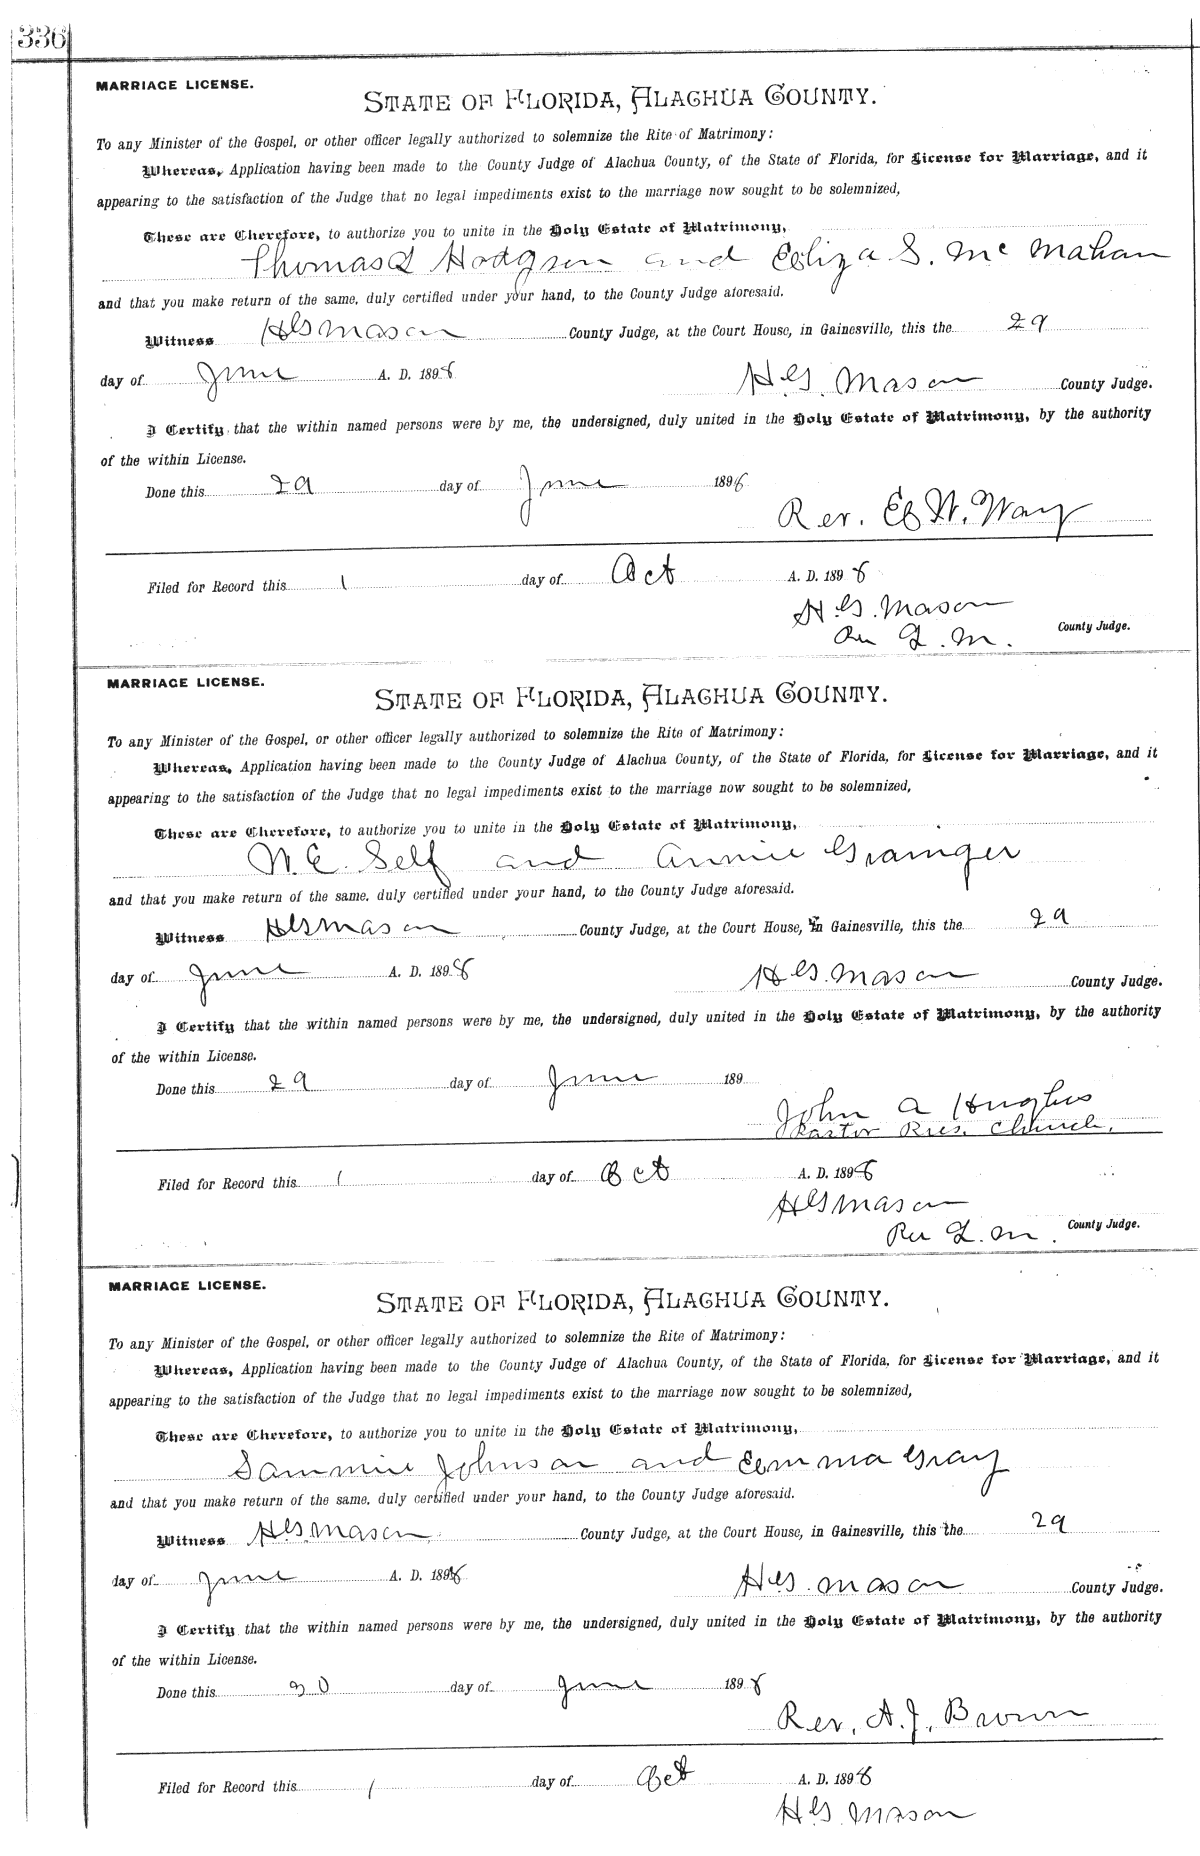 336
MARRIAGE LICENSE.
STATE OF FLORIDA, ALACHUA COUNTY.
To any Minister of the Gospel, or other officer legally authorized to solemnize the Rite of Matrimony:
Whereas, Application having been made to the County Judge of Alachua County, of the State of Florida, for License for Marriage, and it
appearing to the satisfaction of the Judge that no legal impediments exist to the marriage now sought to be solemnized,
These are Therefore, to authorize you to unite in the Holy Estate of Matrimony,
Thomas S Hodgson and Eliza S. McMahan
and that you make return of the same, duly certified under your hand, to the County Judge aforesaid.
Witness H G Mason County Judge, at the Court House, in Gainesville, this the 29
day of June A. D. 1898
H. G. Mason County Judge.
I Certify that the within named persons were by me, the undersigned, duly united in the Holy Estate of Matrimony, by the authority
of the within License.
Done this 29 day of June 1898
Rev. E W. Way
Filed for Record this 1 day of Oct A. D. 1898
H. G. Mason
Per L. M. County Judge.
MARRIAGE LICENSE.
STATE OF FLORIDA, ALACHUA COUNTY.
To any Minister of the Gospel, or other officer legally authorized to solemnize the Rite of Matrimony:
Whereas, Application having been made to the County Judge of Alachua County, of the State of Florida, for License for Marriage, and it
appearing to the satisfaction of the Judge that no legal impediments exist to the marriage now sought to be solemnized,
These are Therefore, to authorize you to unite in the Holy Estate of Matrimony,
W. E. Self and Annie Grainger
and that you make return of the same, duly certified under your hand, to the County Judge aforesaid.
Witness H G Mason County Judge, at the Court House, in Gainesville, this the 29
day of June A. D. 1898
H G. Mason County Judge.
I Certify that the within named persons were by me, the undersigned, duly united in the Holy Estate of Matrimony, by the authority
of the within License.
Done this 29 day of June 189
John A Hughes
Pastor Pres. Church.
Filed for Record this 1 day of Oct A. D. 1898
H G Mason
Per L. M. County Judge.
MARRIAGE LICENSE.
STATE OF FLORIDA, ALACHUA COUNTY.
To any Minister of the Gospel, or other officer legally authorized to solemnize the Rite of Matrimony:
Whereas, Application having been made to the County Judge of Alachua County, of the State of Florida, for License for Marriage, and it
appearing to the satisfaction of the Judge that no legal impediments exist to the marriage now sought to be solemnized,
These are Therefore, to authorize you to unite in the Holy Estate of Matrimony,
Sammie Johnson and Emma Gray
and that you make return of the same, duly certified under your hand, to the County Judge aforesaid.
Witness H G. Mason County Judge, at the Court House, in Gainesville, this the 29
day of June A. D. 1898
H G. Mason County Judge.
I Certify that the within named persons were by me, the undersigned, duly united in the Holy Estate of Matrimony, by the authority
of the within License.
Done this 30 day of June 1898
Rev. A. J. Brown
Filed for Record this 1 day of Oct A. D. 1898
H G. Mason